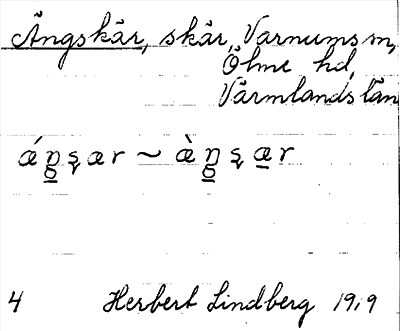 Ängskär, skär, Varnums sn,
Ölme hd,
Värmlands län
ǽŋ̲ʂær ~ æ̀ŋ̲ʂæ̲r
4 Herbert Lindberg 1919